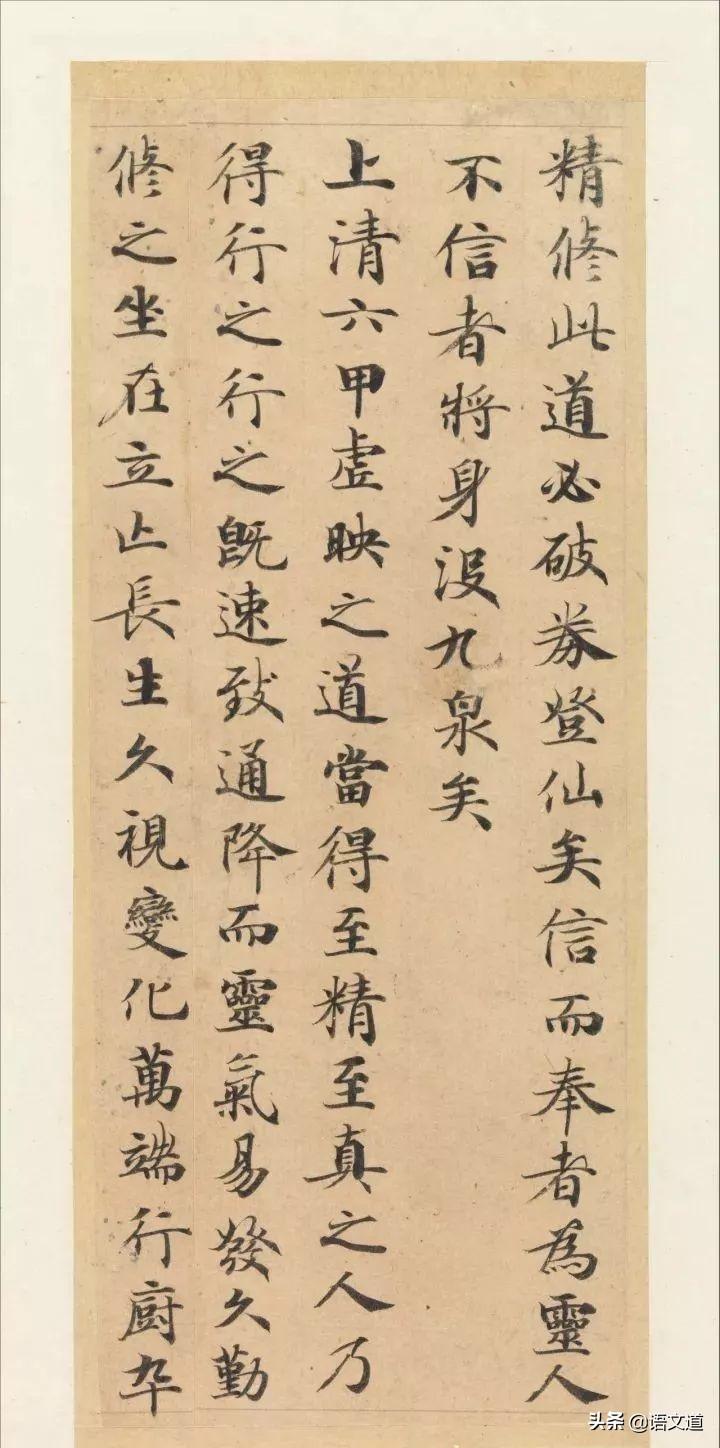 精脩此道必破券登仙矣信而奉者為靈人
不信者將身没九泉矣
上清六甲虚映之道當得至精至真之人乃
得行之行之既速致通降而靈氣易發久勤
脩之坐在立亡長生久視變化萬端行廚卒
头条 @语文道